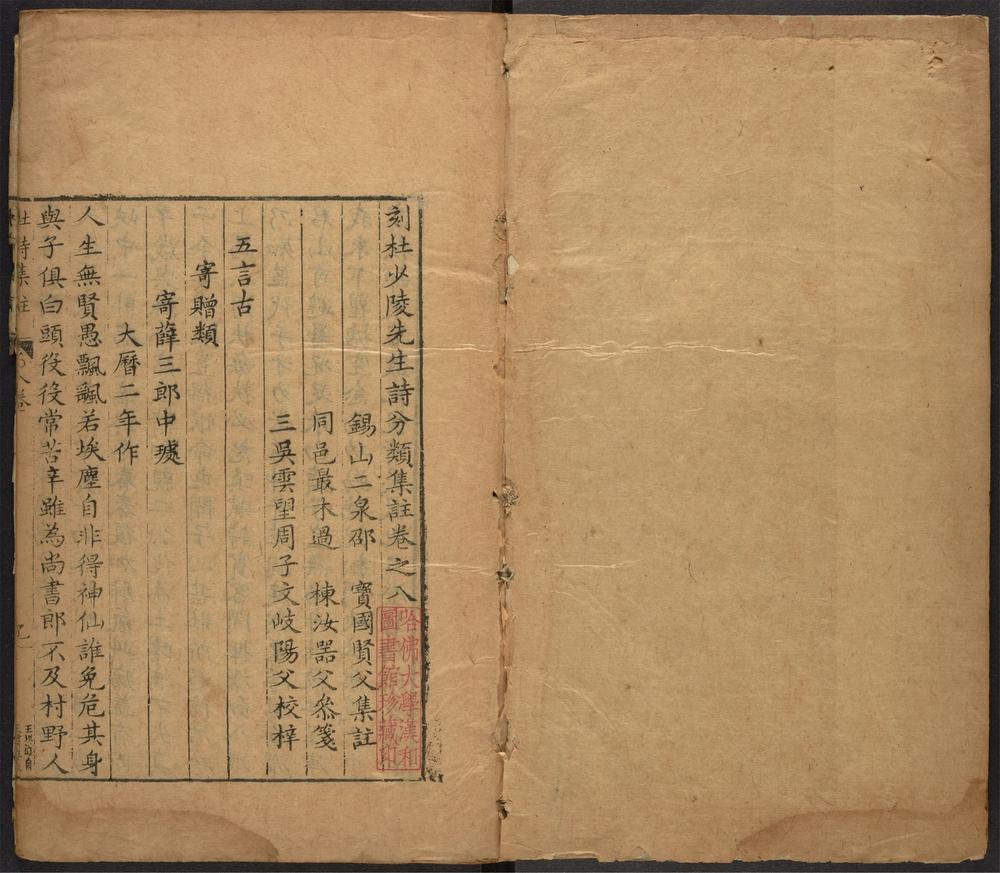 刻杜少陵先生詩分類集註卷之八
錫山二泉邵 寶國賢父集註
同邑最木過 棟汝器父叅箋
三吳雲望周子文岐陽父校梓
五言古
寄贈類
寄薛三郎中璩
大曆二年作
人生無賢愚飄飄若埃塵自非得神仙誰免危其身
與子俱白頭役役常苦辛雖為尚書郎不及村野人
杜詩集註
八卷
哈佛大學漢和
圖書館珍藏印